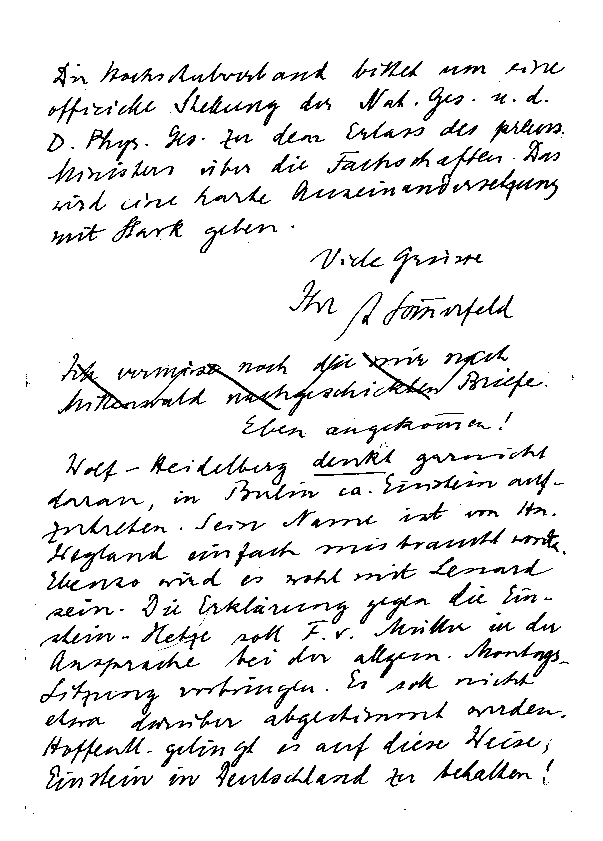 Der Hochschulverband bittet um eine
officielle Stellung der Nat. Ges. u. d.
D. Phys. Ges. zu dem Erlass des preuss.
Ministers über die Fachschaften. Das
wird eine harte Auseinandersetzung
mit Stark geben.
Viele Grüsse
Ihr A Sommerfeld
Ich vermisse noch die mir nach
Mittenwald nachgeschickten Briefe.
Eben angekommen!
Wolf-Heidelberg denkt garnicht
daran, in Berlin ca. Einstein auf-
zutreten. Sein Name ist von Hn.
Weyland einfach misbraucht worden.
Ebenso wird es wohl mit Lenard
sein. Die Erklärung gegen die Ein-
stein-Hetze soll F. v. Müller in der
Ansprache bei der allgem. Montags-
Sitzung vorbringen. Es soll nicht
etwa darüber abgestimmt werden.
Hoffentl. gelingt es auf diese Weise,
Einstein in Deutschland zu behalten!